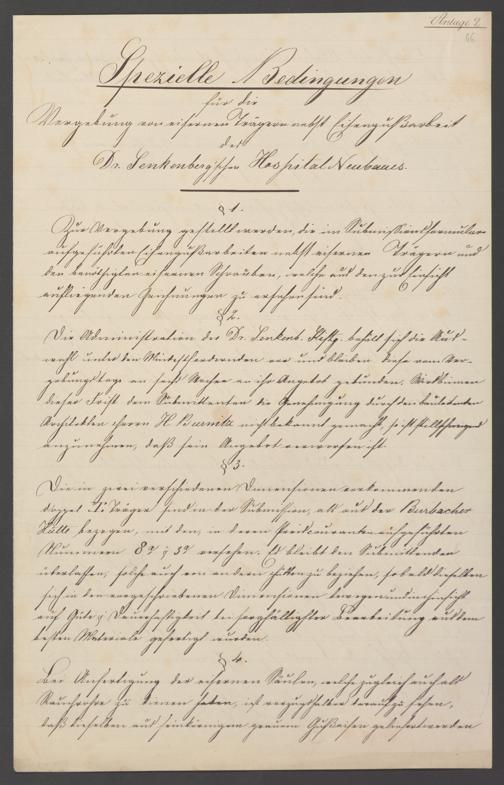 Anlage 2
66
Spezielle Bedingungen
für die
Vergebung von eisernen Trägern nebst Eisengußarbeit
des
Dr. Senkenberg'schen Hospital Neubaues.
§ 1.
Zur Vergebung gestellt werden, die im Submissionsformular
aufgeführten Eisengußarbeiten nebst eisernen Trägern und
den benöthigten eisernen Schrauben, welche aus den zur Einsicht
aufliegenden Zeichnungen zu ersehen sind.
§ 2.
Die Administration der Dr. Senkenb. Stiftg. behält sich die Aus-
wahl unter den Mindestfordernden vor und bleiben diese vom Ver-
gebungstage an sechs Wochen an ihr Angebot gebunden. Wird binnen
dieser Frist dem Submittenten die Genehmigung durch den bauleitenden
Architekten Herrn H. Burnitz nicht bekannt gemacht, so ist stillschweigend
anzunehmen, daß sein Angebot verworfen ist.
§ 3.
Die in zwei verschiedenen Dimensionen vorkommenden
doppel T Träger sind in der Submission, als aus der Burbacher
Hütte bezogen, mit den, in deren Preiscouranten aufgeführten
Nummern versehen. Es bleibt den Submittenten
überlassen, solche auch von andern Hütten zu beziehen, sobald dieselben
sich in den vorgeschriebenen Dimensionen bewegen und in Hinsicht
auf Güte, Dauerhaftigkeit bei sorgfältigster Bearbeitung aus dem
besten Materiale gefertigt wurden.
§ 4.
Bei Anfertigung der eisernen Säulen, welche zugleich auch als
Rauchrohre zu dienen haben, ist vorzugsweise darauf zu sehen,
daß dieselben aus feinkörnigem grauem Gußeisen geliefert werden